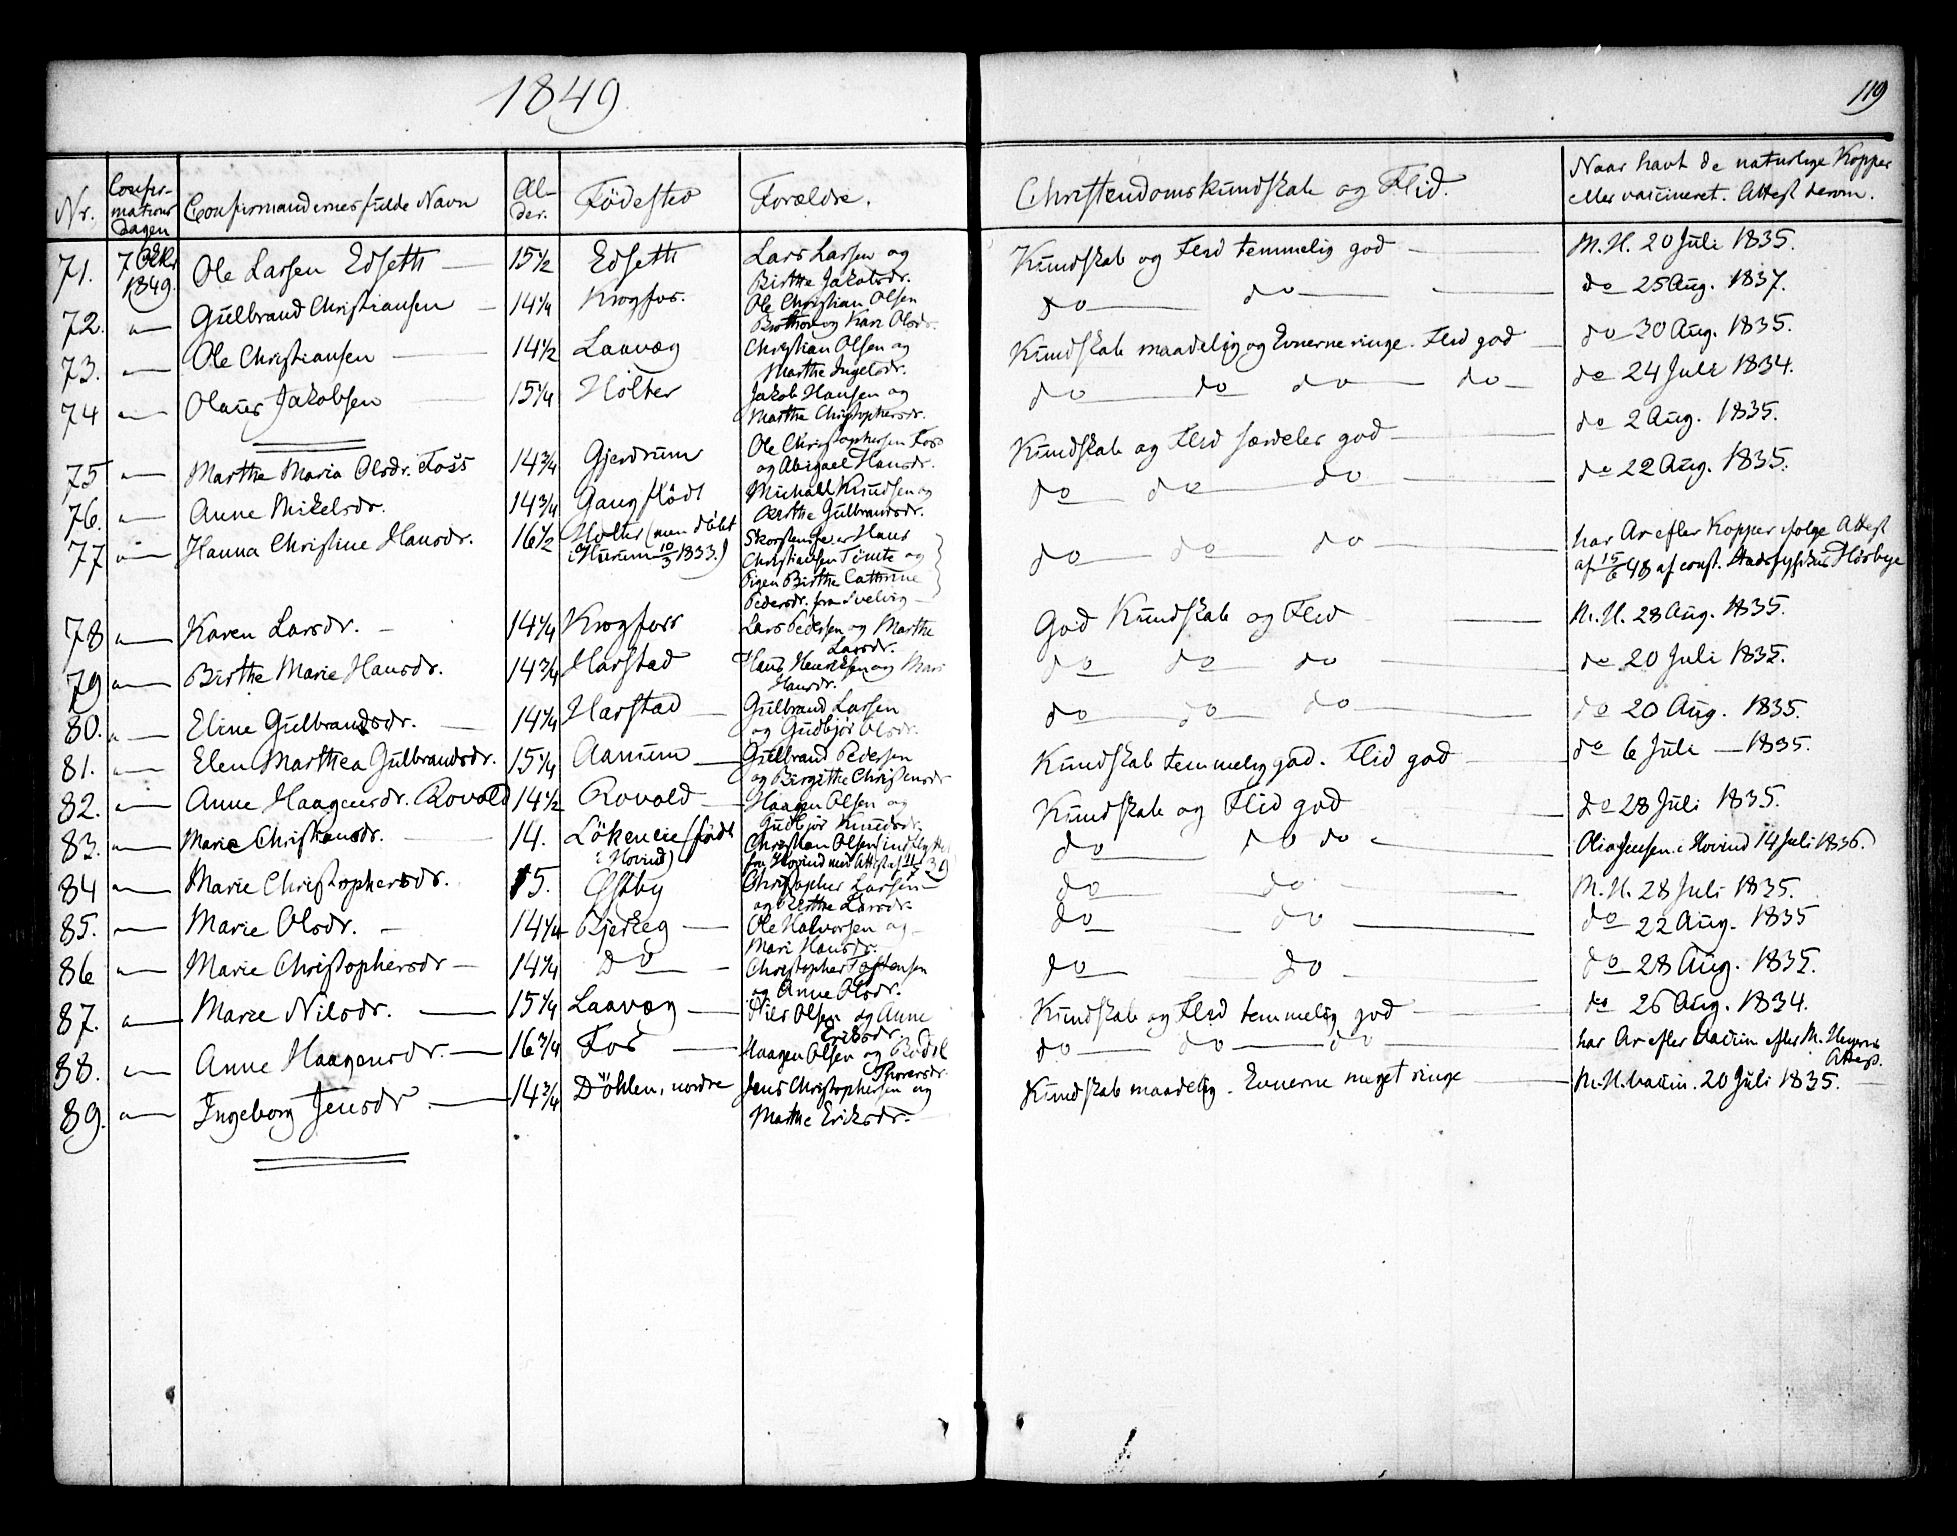 1849.
119
Nr. Confir- Confirmandernes fulde Navn Al- Fødested Forældre. Christendomskundskab og Flid. Naar havt de naturlige Kopper
mations der. eller vaccineret. Attest derom.
Dagen
71. 7 Oktr 1849. Ole Larsen Edseth — 15½ Edseth Lars Larsen og Kundskab og Flid temmelig god — M. H. 20 Juli 1835.
Birthe Jakobsdr.
72. " — Gulbrand Christiansen — 14¼ Krogfos. Ole Christian Olsen do — do — do 25 Aug. 1837.
og Kari Olsdr.
73. " — Ole Christiansen — 14½ Laavæg Christian Olsen og Kundskab maadelig og Evnerne ringe. Flid god — do 30 Aug. 1835.
Marthe Ingelsdr.
74 " — Olaus Jakobsen — 15¼ Holter Jakob Hansen og do — do do — do — do 24 Juli 1834.
Marthe Christophersdr.
75 " — Marthe Maria Olsdr. Foss 14¾ Gjerdrum Ole Christophersen Fos Kundskab og Flid særdeles god — do 2 Aug. 1835.
og Abigael Hansdr.
76. " — Anne Mikelsdr. 14¾ Michall Knudsen og do — do — do — do 22 Aug. 1835.
Berthe Gulbrandsdr.
77 " — Hanna Christine Hansdr. 16½ Holter (men döbt Skorstensfeier Hans do — do — do — har Ar efter Kopper ifølge Attest
i Hurum 10/3 1833.) Christiansen Tömte og af 15/6 48 af const. Stadsfysikus
Pigen Birthe Cathrine
Pedersdr. fra Svelvig —
78 " — Karen Larsdr. — 14¼ Krogfoss Lars Pedersen og Marthe God Kundskab og Flid — M. H. 28 Aug. 1835.
Larsdr.
79 " — Birthe Marie Hansdr. 14¾ Harstad Hans Henriksen og Mari do do do — do 20 Juli 1835.
Hansdr.
80. " — Eline Gulbrandsdr. — 14¼ Harstad — Gulbrand Larsen do do do — do 20 Aug. 1835.
og Gudbjør Olsdr.
81. " — Elen Marthea Gulbrandsdr. 15¼ Aamum — Gulbrand Pedersen Kundskab temmelig god. Flid god — do 6 Juli — 1835.
og Birgithe Christensdr
82. " — Anne Haagensdr. Rovold 14½ Rovold — Haagen Olsen og Kundskab og Flid god — do 28 Juli 1835.
Gudbjør Knudsdr.
83. " — Marie Christiansdr. — 14. Lökeneie (född Christian Olsen (indflyttet do — do do — Jensen i Hovind 14 Juli 1836.
i Hovind) fra Hovind med Attest af
84 " — Marie Christophersdr. 15. Østby Christopher Larsen — do — do — M. H. 28 Juli 1835.
og Berthe Larsdr.
85. " — Marie Olsdr. — 14¼ Bjerkeg — Ole Halvorsen og — do — do — do 22 Aug. 1835
Mari Hansdr.
86 " — Marie Christophersdr — 14¼ Do — Christopher Tostensen do — do — do 28 Aug. 1835.
og Anne Olsdr.
87. " — Marie Nilsdr. — 15¼ Laavæg — Nils Olsen og Anne Kundskab og Flid temmelig god — do 26 Aug. 1834.
Eriksdr.
88. " — Anne Haagensdr. — 16¾ Fos — Haagen Olsen og Bodil do — do — do — har Ar efter Vaccin efter M. Heyerns
Thorersdr. Attest.
89. " — Ingeborg Jensdr. — 14¾ Döhlen, nordre Jens Christophersen og Kundskab maadelig. Evnerne meget ringe — M. H. Vaccin. 20 Juli 1835. —
Marthe Eriksdr.